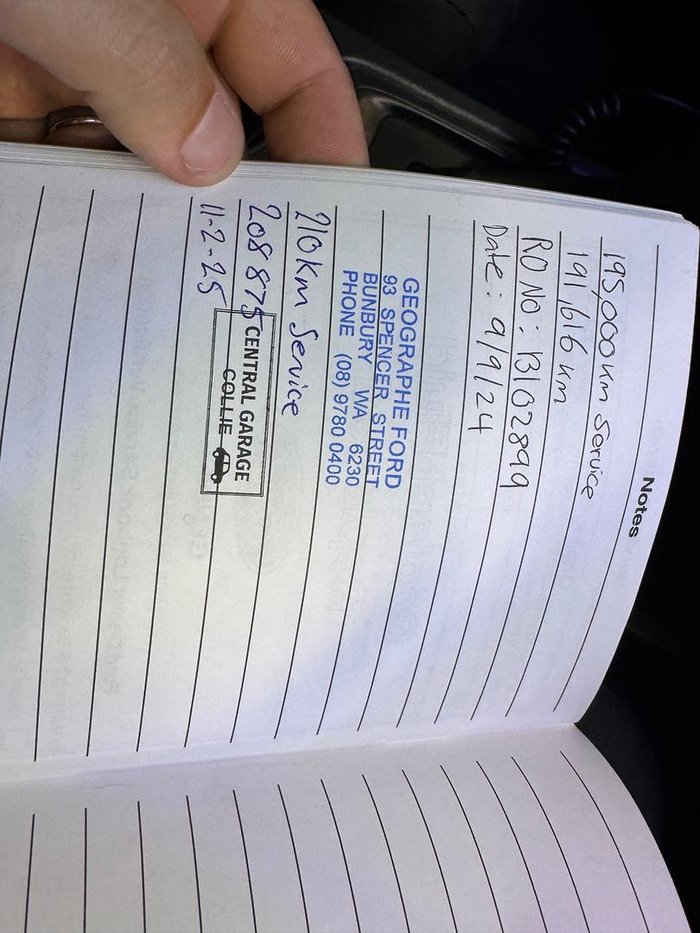 Notes
195,000 km Service
191,616 km
RO NO: 13102899
Date: 9/9/24
GEOGRAPHE FORD
93 SPENCER STREET
BUNBURY WA 6230
PHONE (08) 9780 0400
210 Km Service
208 875
11-2-25
CENTRAL GARAGE
COLLIE